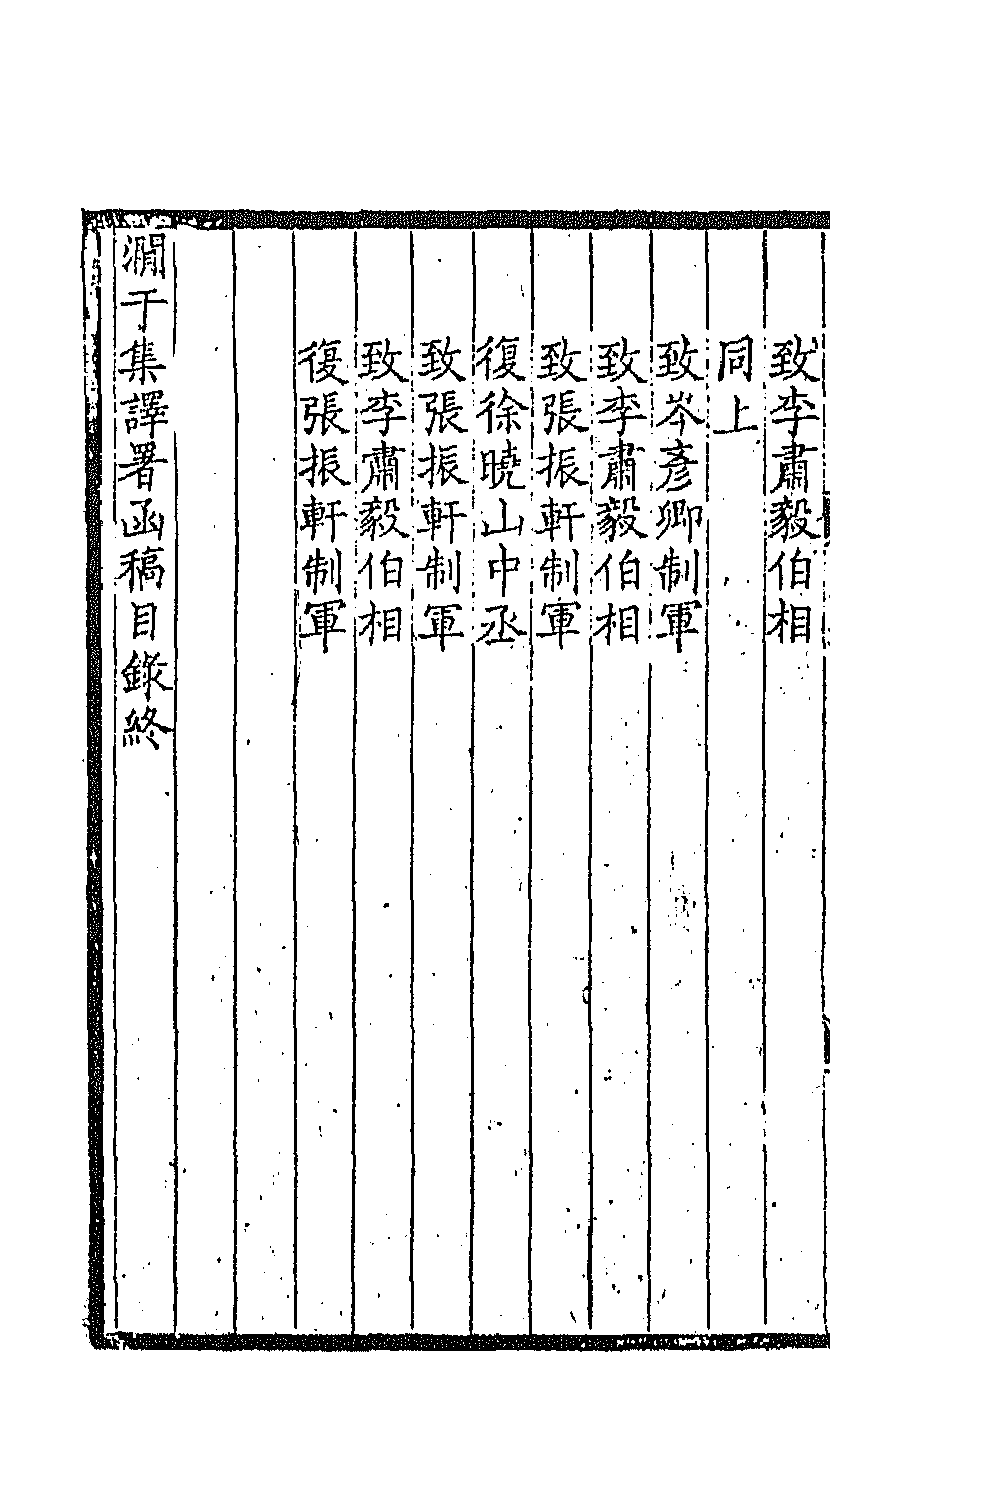 致李肅毅伯相
同上
致岑彥卿制軍
致李肅毅伯相
致張振軒制軍
復徐曉山中丞
致張振軒制軍
致李肅毅伯相
復張振軒制軍
澗于集譯署函稿目錄終